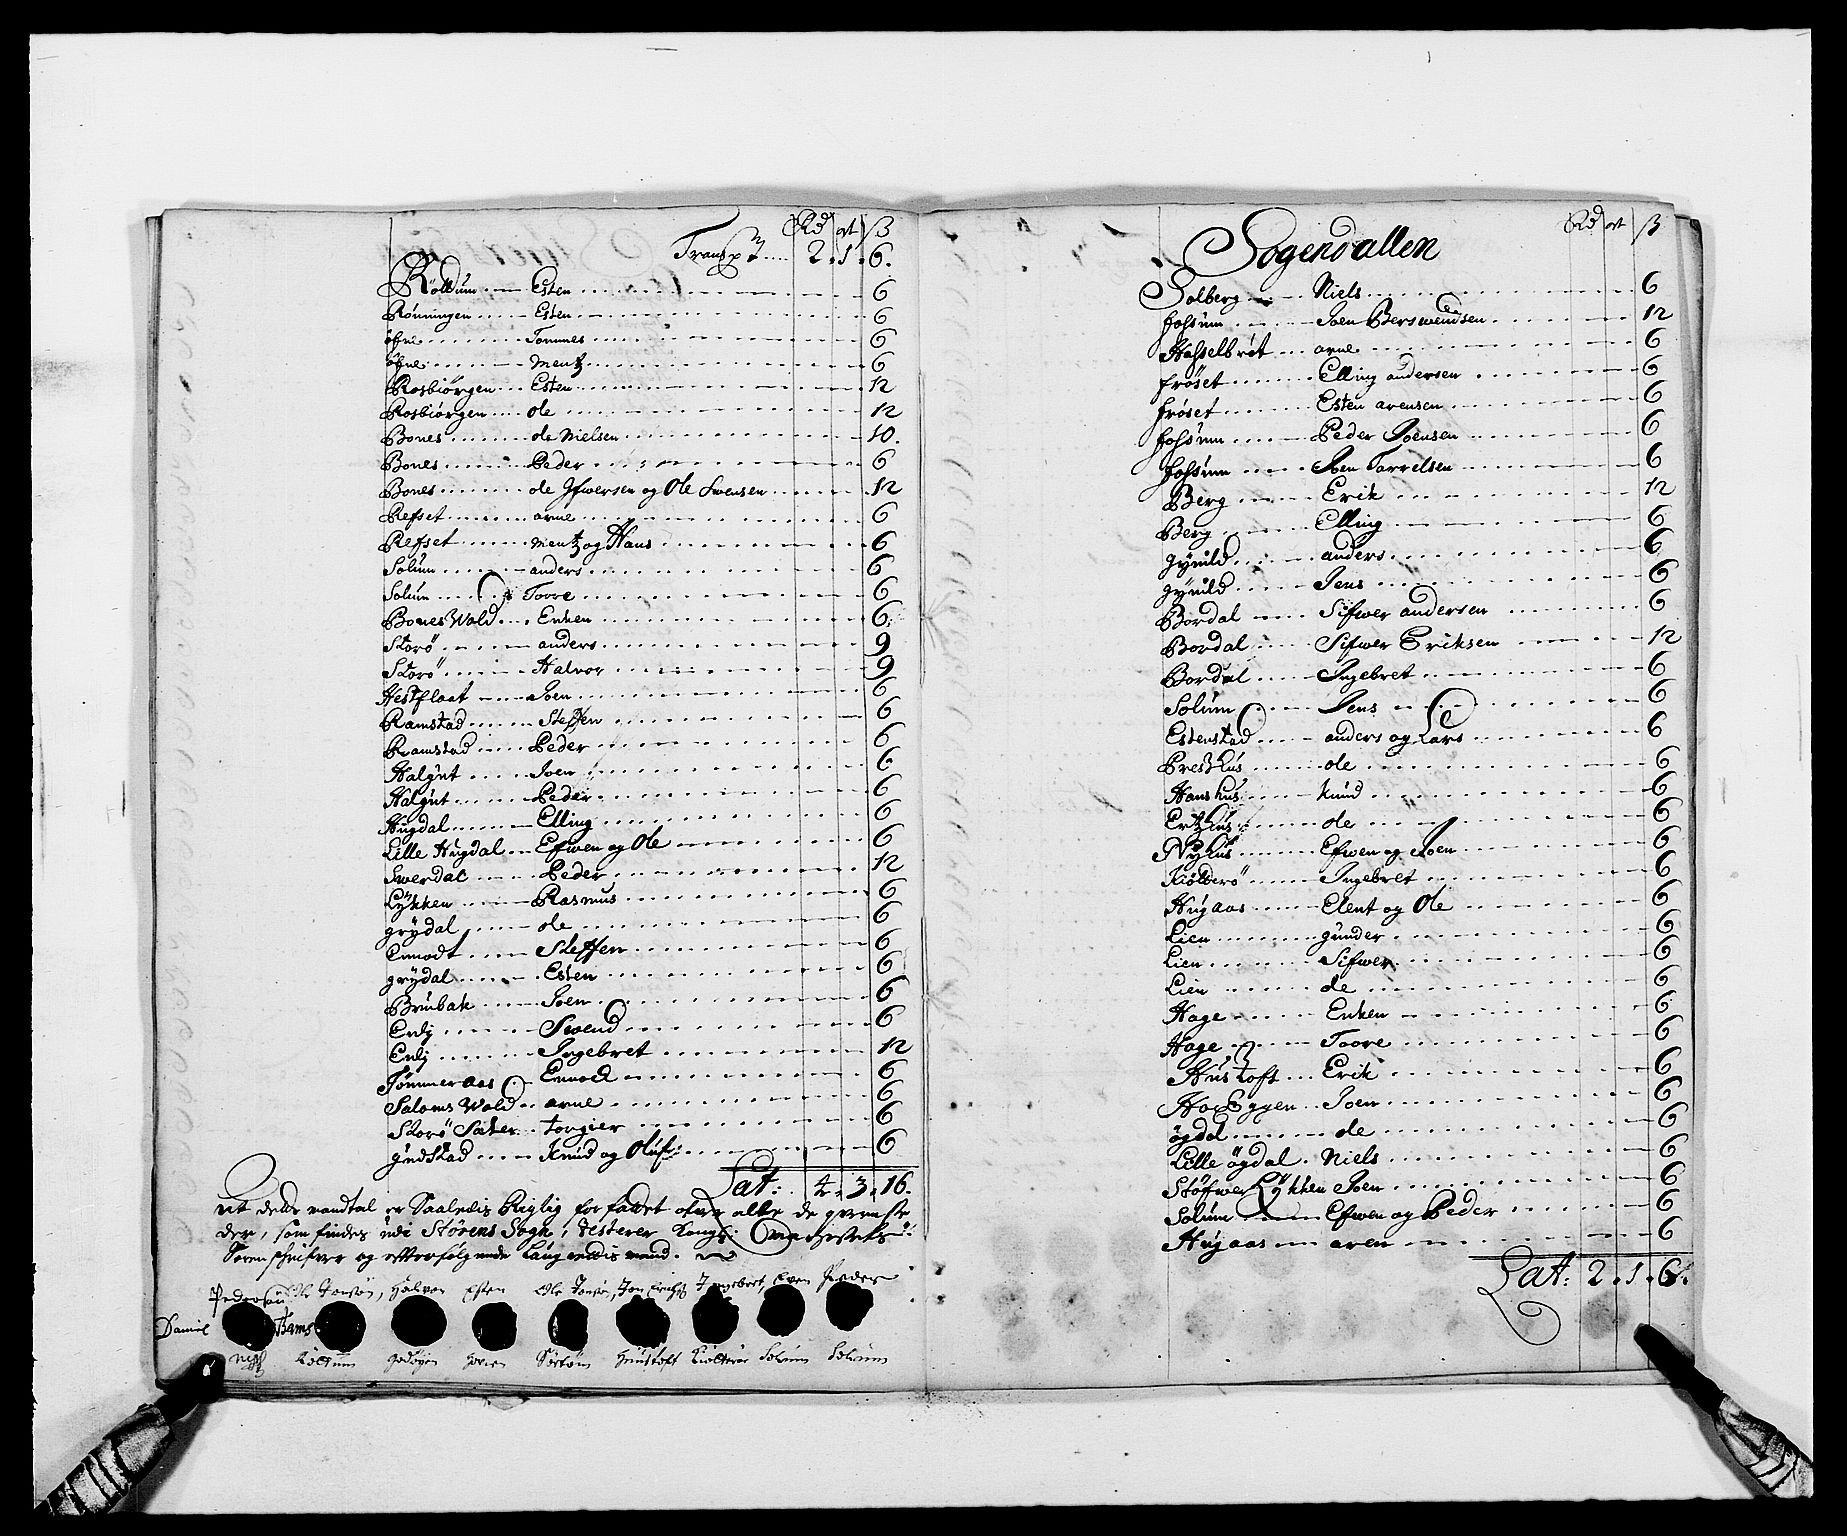 Rd ort ß
Transpt .... 2 . 1 . 6.
Rölldum .... Esten .... 6
Rönningen .... Esten .... 6
öfne .... Tommes .... 6
öfne .... Mentz .... 6
Rosbiörgen .... Esten .... 12
Rosbiörgen .... ole .... 12
Bones .... ole Nielsen .... 10.
Bones .... Peder .... 6
Bones .... ole Ifwersen og Ole Swensen .... 12
Refset .... arne .... 6
Refset .... Mentz og Hans .... 6
Solum .... anders .... 6
Solum .... Toore .... 6
Bones Wald .... Enken .... 6
Storö .... anders .... 9
Storö .... Halvor .... 9
Hestflaat .... Joen .... 6
Ramstad .... Steffen .... 6
Ramstad .... Peder .... 6
Halgut .... Joen .... 6
Halgut .... Peder .... 6
Hugdal .... Elling .... 6
Lille Hugdal .... Efwen og Ole .... 6
Swerdal .... Peder .... 12
Lykken .... Rasmus .... 6
grydal .... ole .... 6
Enmodt .... Steffen .... 6
grydal .... Esten .... 6
Brubak .... Joen .... 6
Enlj .... Swend .... 6
Enlj .... Ingebret .... 12
Tömmeraas .... Enmod .... 6
Saloms Wald .... arne .... 6
Storö Sæter .... torgier .... 6
gudstad .... Knud og Oluf .... 6
Lat: 4 . 3 . 16.
At dette mandtal er Saaledis Rigtig forfattet ofver alle de grenste
der, som findes udi Störens Sogn, testerer Kongl: Majestets
Sorenschrifver og efterfölgende Laugrettis mend.
Pedersön Ole Jonsön, Halvor Esten Ole Jonsön, Jon Erichs Ingebret, Even Peder
Daniel Bams
Röllum Godöyen Horien Sörtöm Hustoft Kiölterö Solum Solum
Rd ort ß
Sogendallen
Solberg .... Niels .... 6
fossum .... Joen Berswendsen .... 12
Hasselbröt .... arne .... 6
fröset .... Elling andersen .... 6
fröset .... Esten arensen .... 6
fossum .... Peder Joensen .... 6
fossum .... Joen Torrelsen .... 6
Berg .... Erik .... 12
Berg .... Elling .... 6
gynild .... anders .... 6
gynild .... Jens .... 6
Bordal .... Sifwer andersen .... 6
Bordal .... Sifwer Eriksen .... 12
Bordal .... Ingebret .... 6
Solum .... Jens .... 6
Estenstad .... anders og Lars .... 6
Presthus .... ole .... 6
Hanshus .... knud .... 6
Ertzhus .... ole .... 6
Nyhus .... Efwen og Joen .... 6
Kiölterö .... Ingebret .... 6
Hugaas .... Elent og Ole .... 6
Lien .... gunder .... 6
Lien .... Sifwer .... 6
Lien .... ole .... 6
Hage .... Enken .... 6
Hage .... Toore .... 6
Hustoft .... Erik .... 6
Hoe Eggen .... Joen .... 6
ögdal .... ole .... 6
Lille ögdal . Niels .... 6
Stöfwer Lykken Joen .... 6
Solum .... Efwen og Peder .... 6
Hugaas .... aren .... 6
Lat: 2 . 1 . 6.